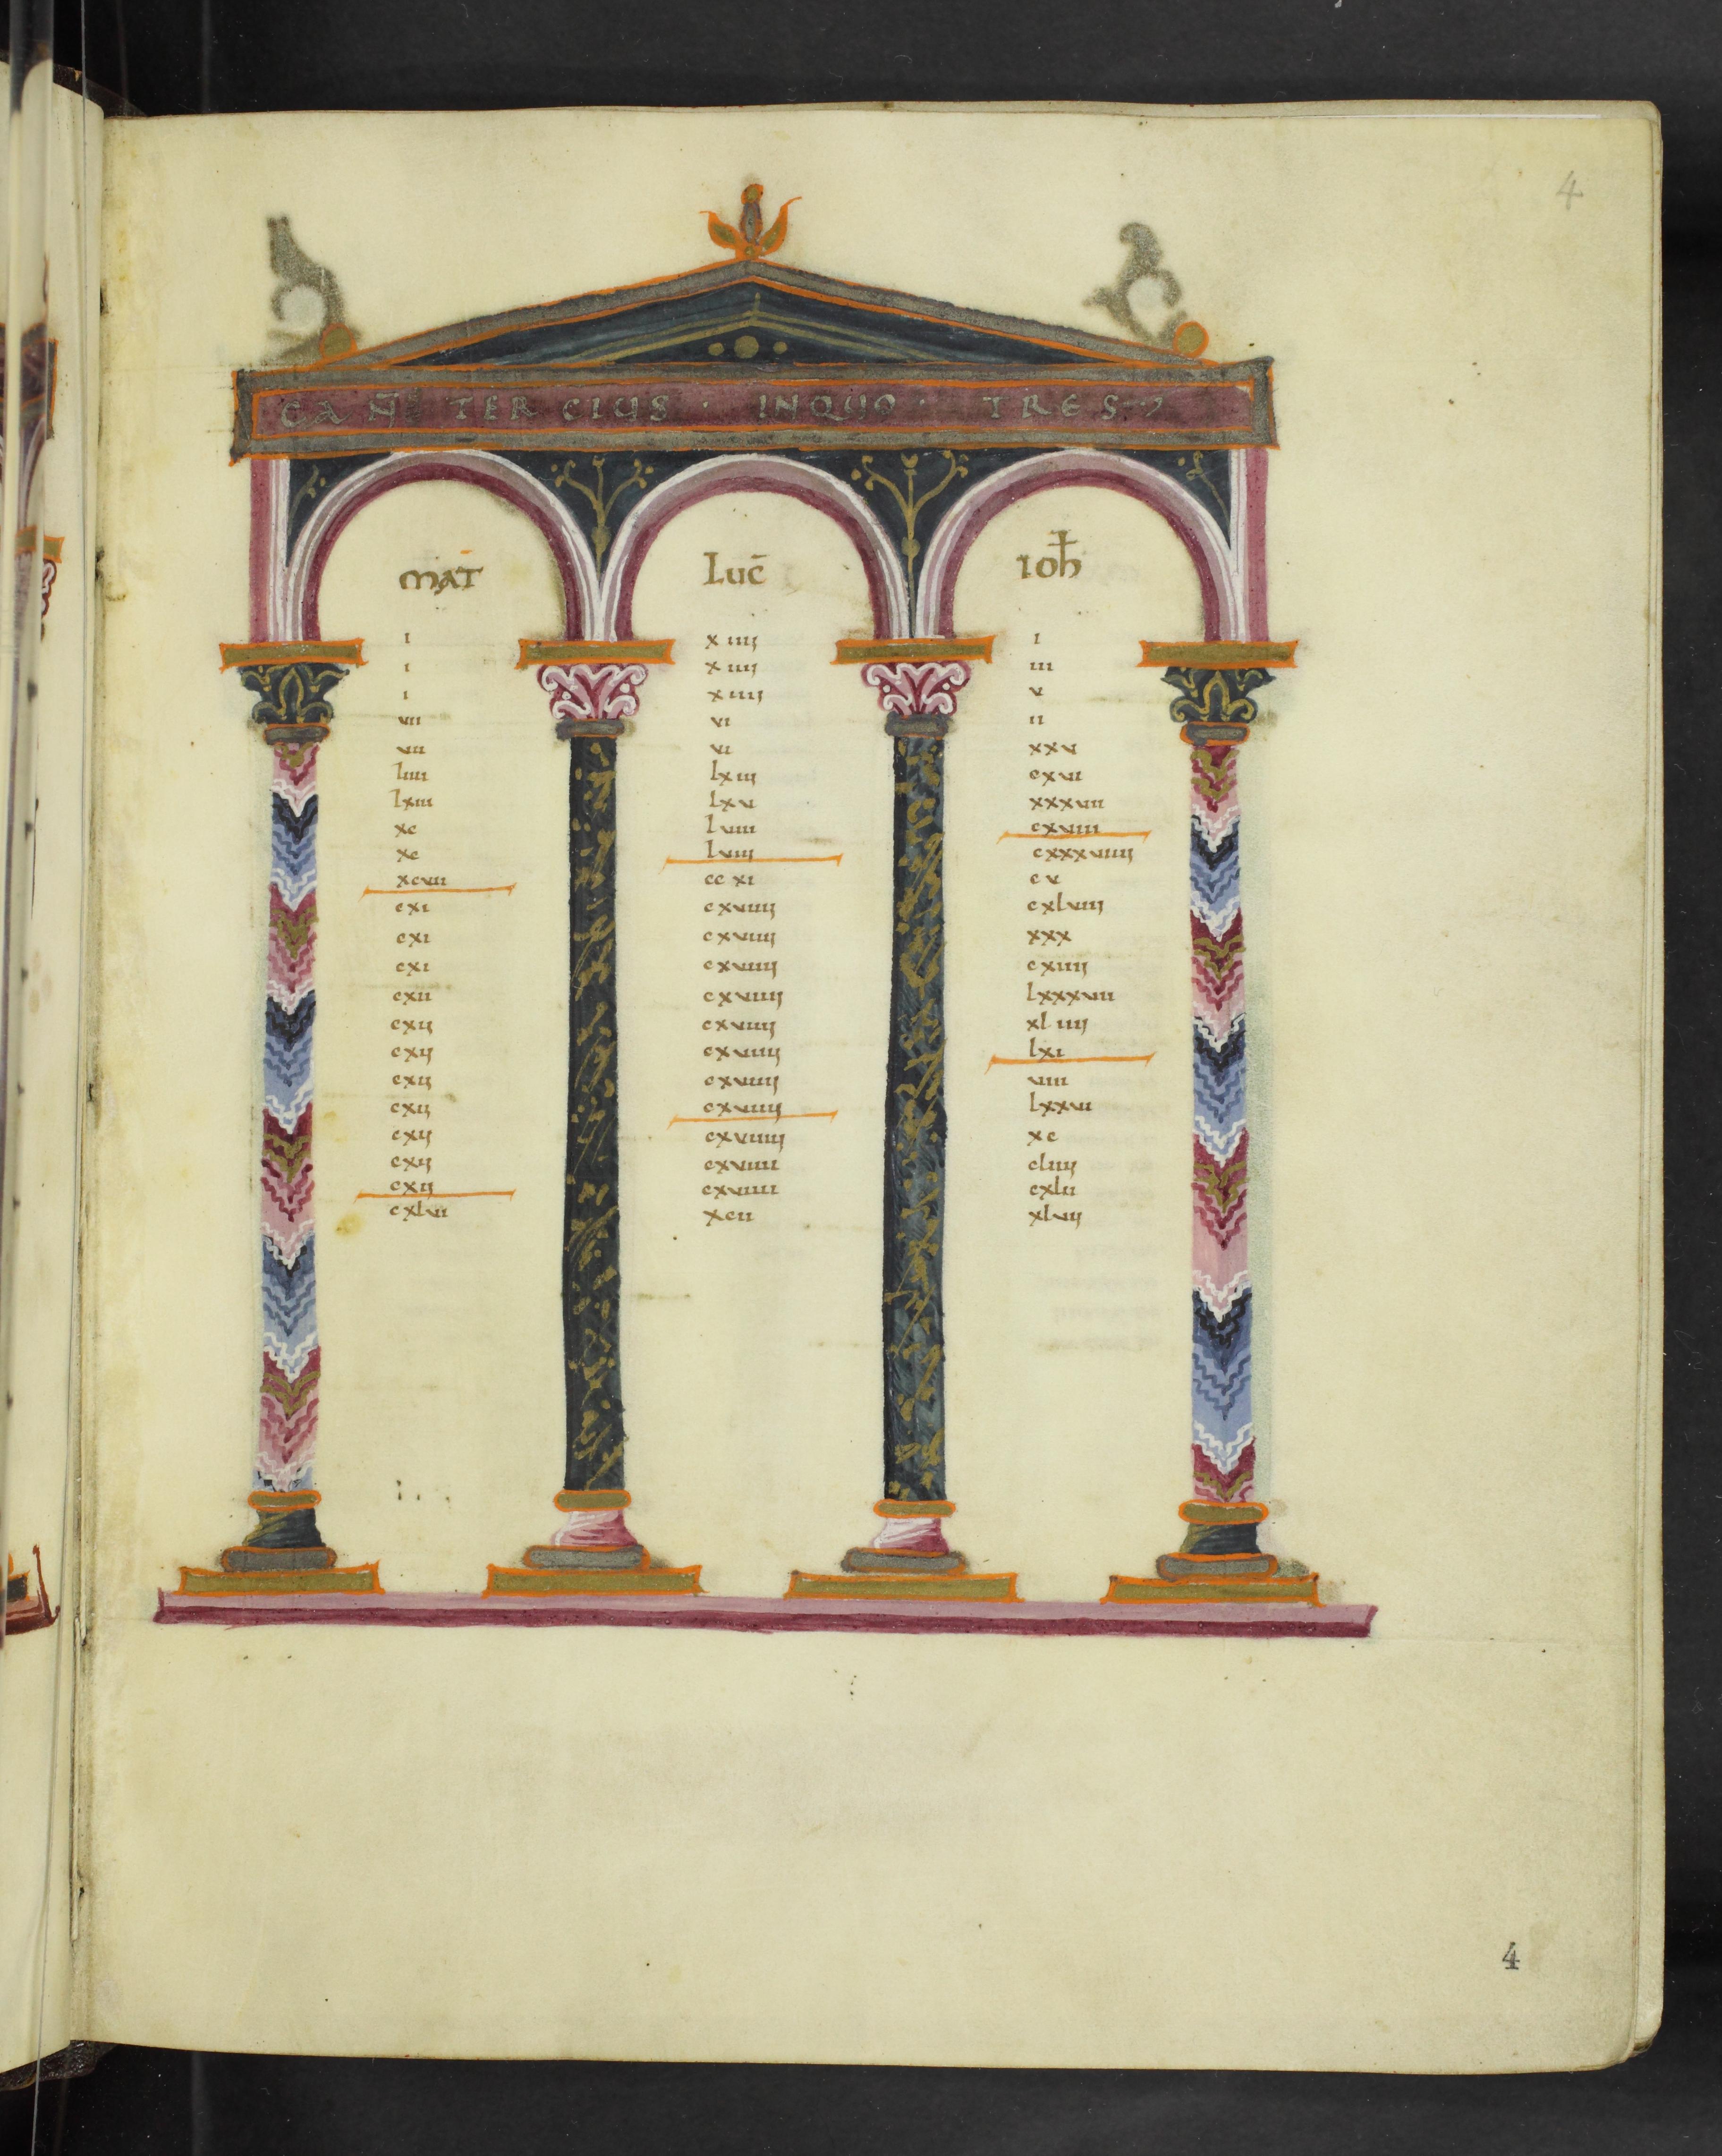 4
CAN̄ TERCIUS · INQUO · TRES
mat̄ Luc̄ ioh̄
i xiiij i
i xiiij iii
i xiiij v
vii vi ii
vii vi xxv
liiii lxiii cxvii
lxiii lxv xxxvii
xc lviii cxviii
xc lviij cxxxviiij
xcvii ccxi cv
cxi cxviiij cxlviij
cxi cxviiij xxx
cxi cxviiij cxiiij
cxii cxviiij lxxxvii
cxij cxviiij xliiij
cxij cxviiij lxi
cxij cxviiij viii
cxij cxviiij lxxvi
cxij cxviiij xc
cxij cxviiii cliiij
cxij cxviiii cxlii
cxlvii xcii xlvij
4